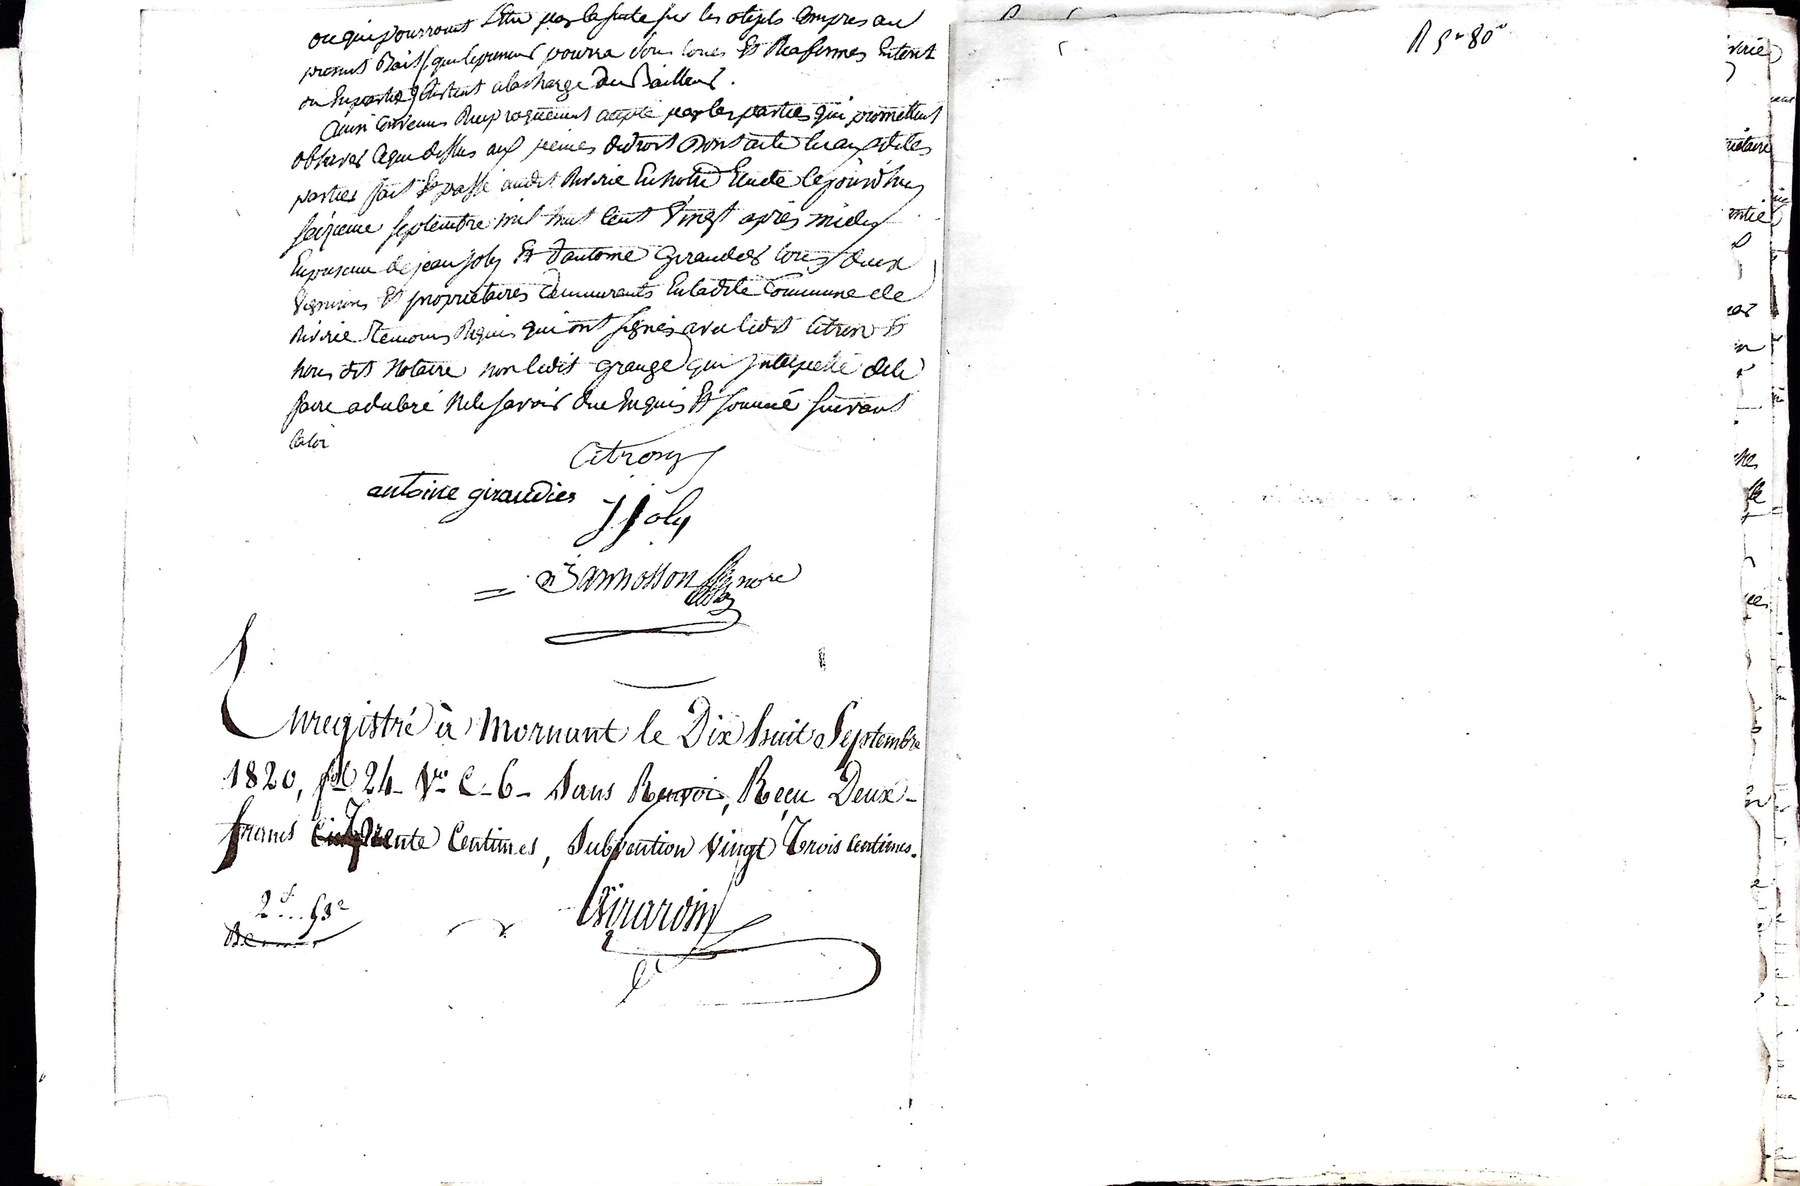 ou qui pourront l'être par la suite sur les objets compris au
present Bail, que le preneur pourra sous louer Et Reaffermer En tout
ou En partie Restant a la charge du Bailleur.
Ainsi Convenu Reciproquement accepté par les parties qui promettent
observer ce que dessus aux peines de droit Dont acte lu aux dites
parties fait Et passé audit Riverie En notre Etude le jourd'huy
seizieme septembre mil huit cent Vingt après midy
En presence de jean joly Et d'antoine Giraudier tous deux
Vignerons Et propriétaires demeurants En ladite Commune de
Riverie Temoins Requis qui ont signés avec ledit Citron Et
nous dit Notaire non ledit grange qui Interpellé de le
faire a déclaré Ne le savoir due Enquis Et sommé suivant
la loi
Citron
antoine giraudier
J Joly
Bannosson nore
Enregistré à Mornant le Dix huit Septembre
1820, fol 24 Vo C. 6 Sans Renvoi, Reçu Deux
francs Trente Centimes, Subvention Vingt Trois Centimes.
2f.. 53c
Girardin
R 5f 80c